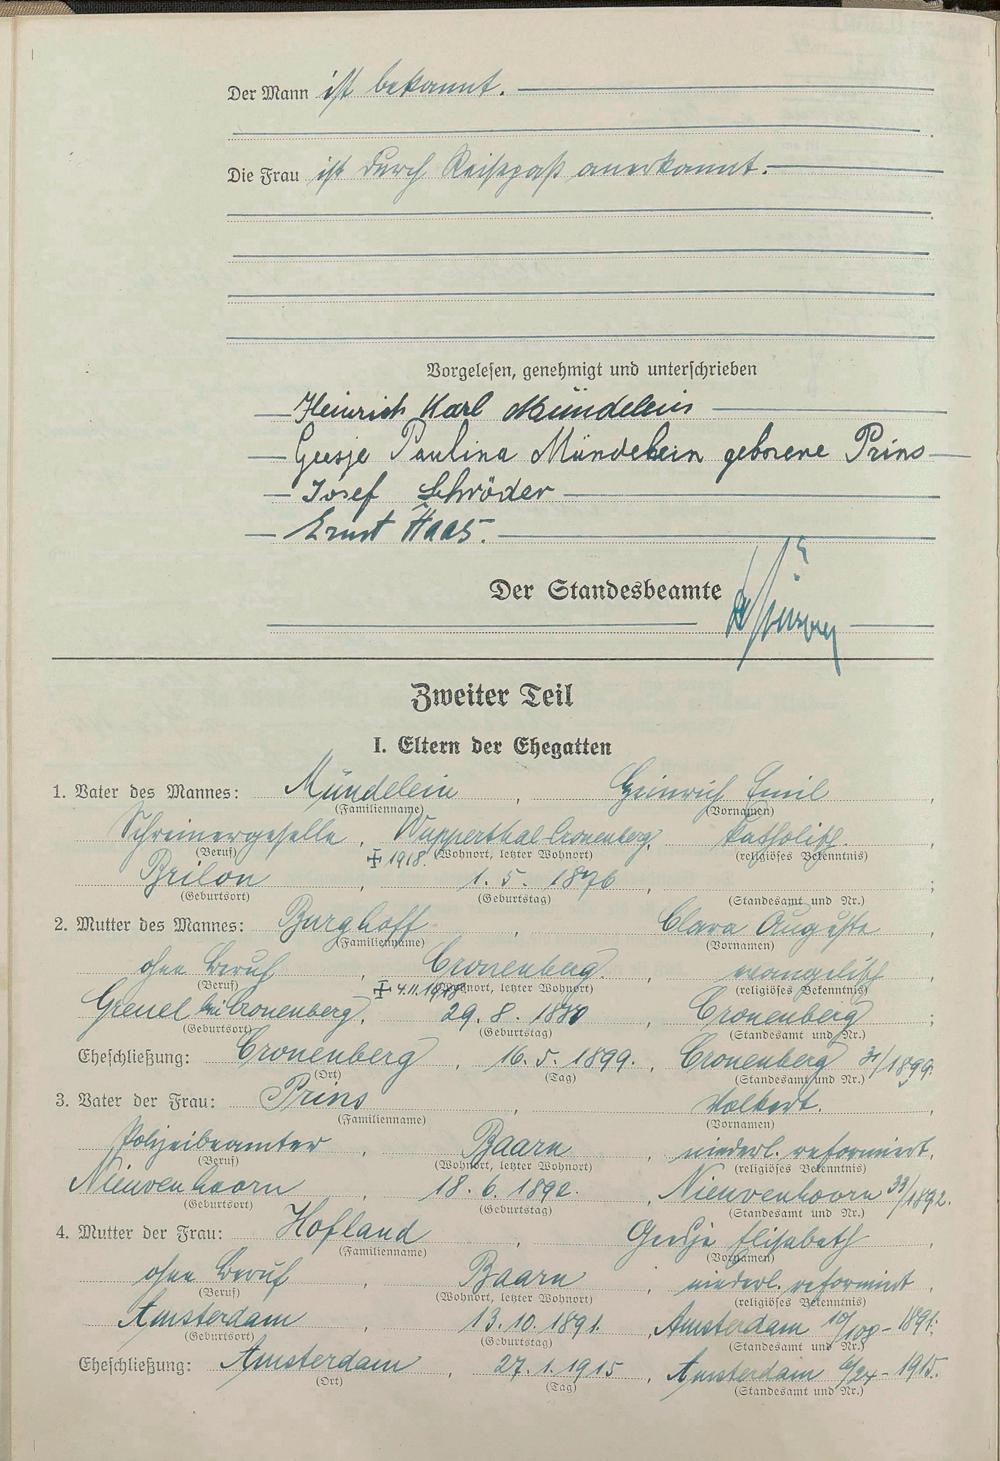 Der Mann ist bekannt.
Die Frau ist durch Reisepaß anerkannt.
Vorgelesen, genehmigt und unterschrieben
Heinrich Karl Mündelein
Geesje Paulina Mündelein geborene Prins
Josef Schröder
Ernst Haas.
Der Standesbeamte
Zweiter Teil
I. Eltern der Ehegatten
1. Vater des Mannes: Mündelein, Heinrich Emil,
(Familienname) (Vornamen)
Schreinergeselle, Wupperthal-Cronenberg, katholisch,
(Beruf) ✠ 1918. (Wohnort, letzter Wohnort) (religiöses Bekenntnis)
Brilon, 1. 5. 1876, ;
(Geburtsort) (Geburtstag) (Standesamt und Nr.)
2. Mutter des Mannes: Burghoff, Clara Auguste,
(Familienname) (Vornamen)
ohne Beruf, Cronenberg, evangelisch,
(Beruf) ✠ 4.11. (Wohnort, letzter Wohnort) (religiöses Bekenntnis)
bei Cronenberg, 29. 8. , Cronenberg ;
(Geburtsort) (Geburtstag) (Standesamt und Nr.)
Eheschließung: Cronenberg, 16. 5. 1899., Cronenberg 31/1899.
(Ort) (Tag) (Standesamt und Nr.)
3. Vater der Frau: Prins, Volkert.,
(Familienname) (Vornamen)
Polizeibeamter, Baarn, niederl. reformiert,
(Beruf) (Wohnort, letzter Wohnort) (religiöses Bekenntnis)
Nieuwenhoorn, 18. 6. 1892., Nieuwenhoorn 39/1892.
(Geburtsort) (Geburtstag) (Standesamt und Nr.)
4. Mutter der Frau: Hofland, Geesje Elisabeth,
(Familienname) (Vornamen)
ohne Beruf, Baarn, niederl. reformiert,
(Beruf) (Wohnort, letzter Wohnort) (religiöses Bekenntnis)
Amsterdam, 13. 10. 1891., Amsterdam 1891.
(Geburtsort) (Geburtstag) (Standesamt und Nr.)
Eheschließung: Amsterdam, 27. 1. 1915, Amsterdam 1915.
(Ort) (Tag) (Standesamt und Nr.)